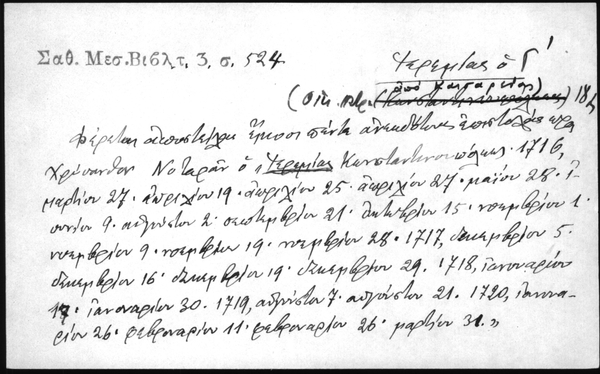 Σαθ. Μεσ. Βιβλ τ. 3, σ. 524
Ἱερεμίας ὁ Γ΄
ἀπὸ Καισαρείας
(Οἰκ. πτρ. (Κωνσταντινουπόλεως)
Φέρεται ἀποστείλας εἴκοσι πέντε ἀνεκδότους ἐπιστολὰς πρὸς
Χρύσανθον Νοταρᾶν ὁ „Ἱερεμίας Κωνσταντινουπόλεως 1716,
μαρτίου 27· ἀπριλίου 19· ἀπριλίου 25· ἀπριλίου 27· μαΐου 28· ἰ-
ουνίου 9· αὐγούστου 2· σεπτεμβρίου 21· ὀκτωβρίου 15· νοεμβρίου 1·
νοεμβρίου 9· νοεμβρίου 19· νοεμβρίου 28· 1717, δεκεμβρίου 5·
δεκεμβρίου 16· δεκεμβρίου 19· δεκεμβρίου 29. 1718, ἰανουαρίου
17· ἰανουαρίου 30. 1719, αὐγούστου 7· αὐγούστου 21. 1720, ἰανουα-
ρίου 26· φεβρουαρίου 11· φεβρουαρίου 26· μαρτίου 31."